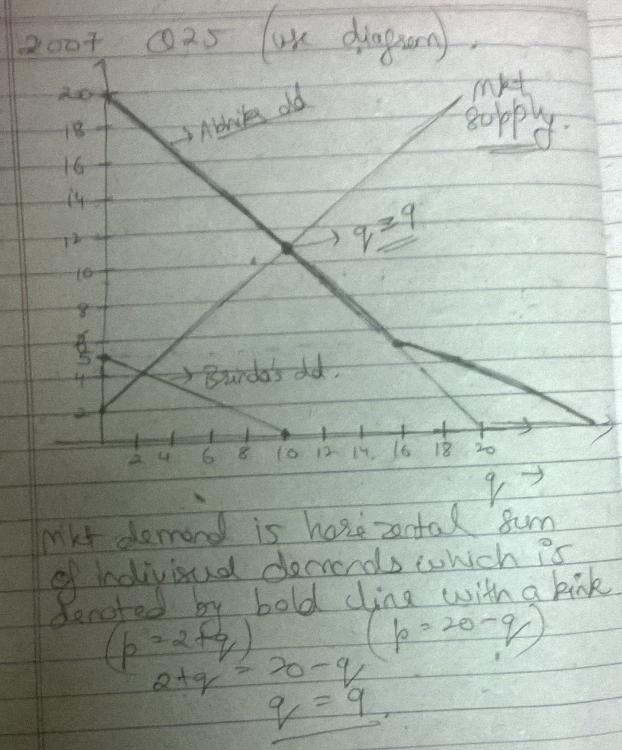 2007 Q25 (use diagram).
20
18
16
14
12
10
8
6
5
4
2
→ Abhika dd
mkt
supply.
→ q = 9
→ Barda's dd.
2 4 6 8 10 12 14 16 18 20
q →
mkt demand is horizontal sum
of individual demands which is
denoted by bold line with a kink
(p = 2+q) (p = 20-q)
2+q = 20-q
q = 9